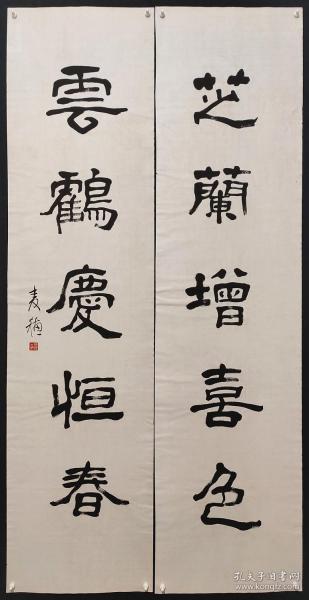 芝蘭增喜色
雲鶴慶恒春
孔夫子旧书网
www.kongfz.com